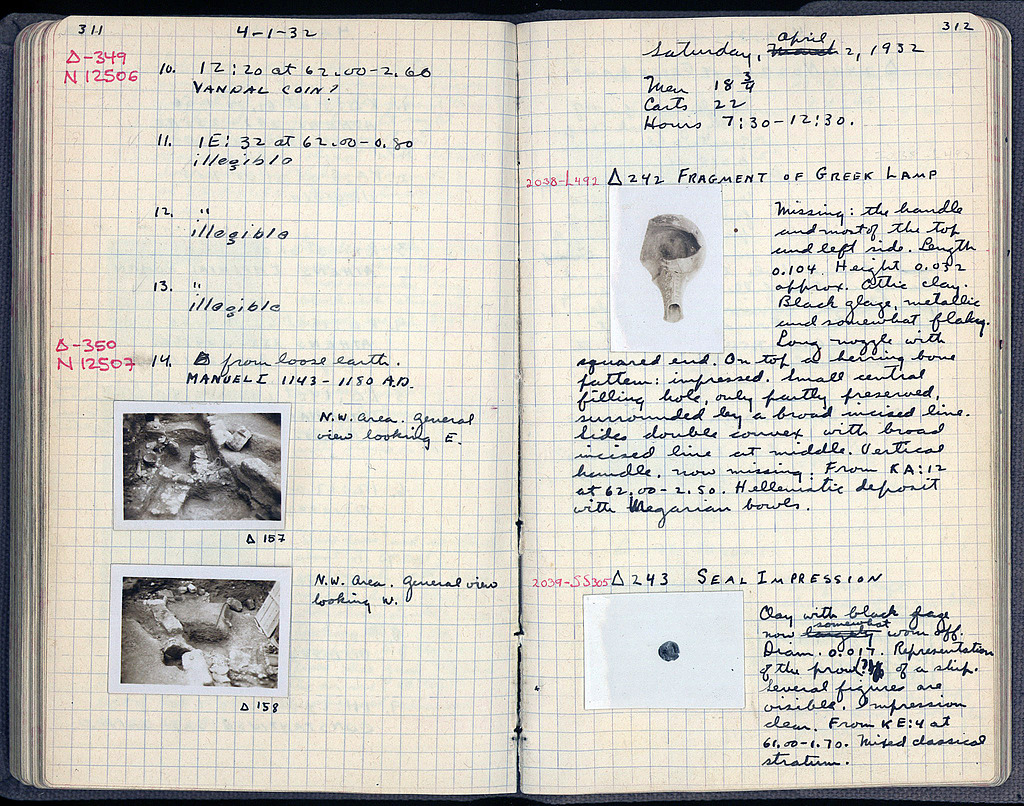 311
4-1-32
Δ-349
N 12506
10. 12:20 at 62.00-2.60
VANDAL COIN?
11. 1E: 32 at 62.00-0.80
illegible
12. "
illegible
13. "
illegible
Δ-350
N 12507
14. from loose earth.
MANUEL I 1143-1180 A.D.
N.W. Area. General
view looking E.
Δ 157
N.W. Area. General view
looking W.
Δ 158
312
Saturday, March April 2, 1932
Men 18 3/4
Carts 22
Hours 7:30-12:30.
2038-L492 Δ 242 FRAGMENT OF GREEK LAMP
Missing: the handle
and most of the top
and left side. Length
0.104. Height 0.032
approx. Attic clay.
Black glaze, metallic
and somewhat flaky.
Long nozzle with
squared end. On top a herring bone
pattern: impressed. Small central
filling hole, only partly preserved,
surrounded by a broad incised line.
Sides double convex, with broad
incised line at middle. Vertical
handle, now missing. From KA:12
at 62.00-2.50. Hellenistic deposit
with Megarian bowls.
2039-SS305 Δ 243 SEAL IMPRESSION
Clay with black glaze
now largely somewhat worn off.
Diam. 0.017. Representation
of the prow(?) of a ship.
Several figures are
visible. Impression
clear. From KE:4 at
61.00-1.70. Mixed classical
stratum.